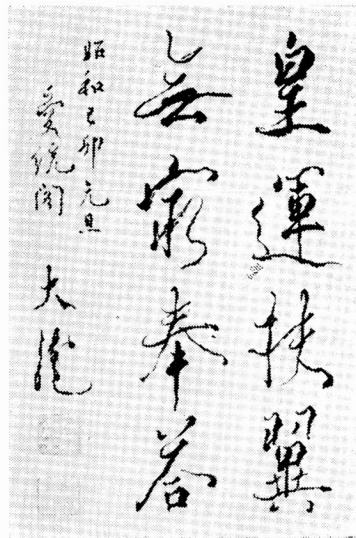 皇運扶翼
無窮奉答
昭和己卯元旦
愛統閣 大